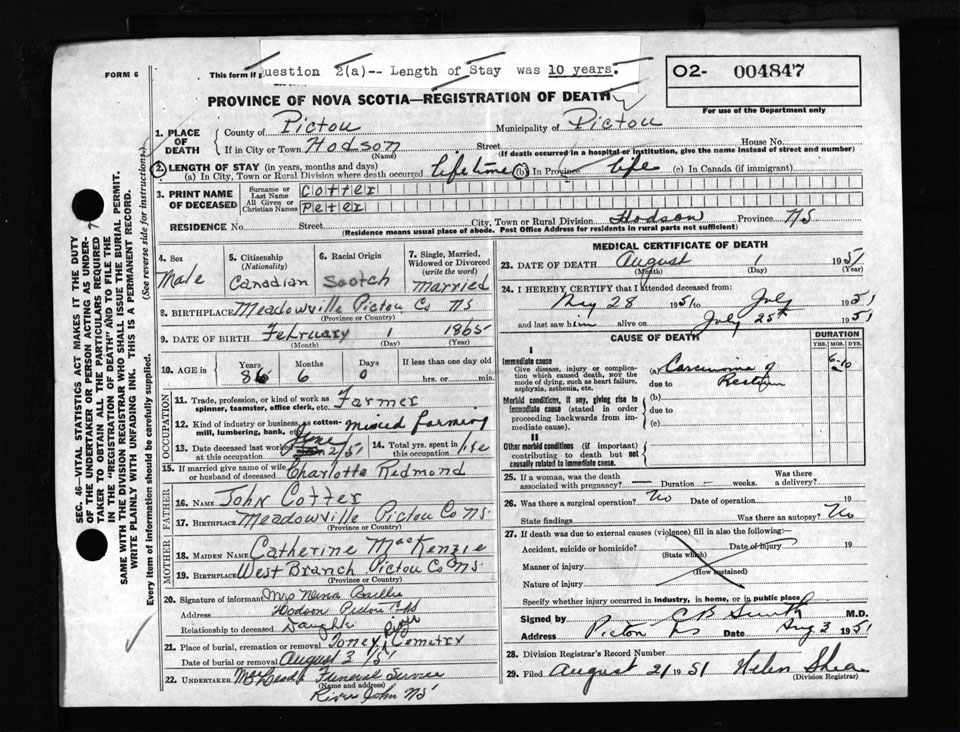 Question 2(a)-- Length of Stay was 10 years.
FORM 6
This form if
O2- 004847
For use of the Department only
PROVINCE OF NOVA SCOTIA—REGISTRATION OF DEATH
1. PLACE OF DEATH
County of Pictou Municipality of Pictou
If in City or Town Hodson Street House No.
(Name) (If death occurred in a hospital or institution, give the name instead of street and number)
2. LENGTH OF STAY (in years, months and days)
(a) In City, Town or Rural Division where death occurred lifetime (b) In Province life (c) In Canada (if immigrant)
3. PRINT NAME OF DECEASED
Surname or Last Name Cotter
All Given or Christian Names Peter
RESIDENCE No. Street City, Town or Rural Division Hodson Province NS
(Residence means usual place of abode. Post Office Address for residents in rural parts not sufficient)
4. Sex Male
5. Citizenship (Nationality) Canadian
6. Racial Origin Scotch
7. Single, Married, Widowed or Divorced (write the word) Married
8. BIRTHPLACE Meadowville Pictou Co NS
(Province or Country)
9. DATE OF BIRTH February 1 1865
(Month) (Day) (Year)
10. AGE in Years 86 Months 6 Days 0 If less than one day old
hrs. or min.
OCCUPATION
11. Trade, profession, or kind of work as spinner, teamster, office clerk, etc. Farmer
12. Kind of industry or business, as cotton-mill, lumbering, bank, etc. mixed farming
13. Date deceased last worked at this occupation June 2/51
14. Total yrs. spent in this occupation life
15. If married give name of wife or husband of deceased Charlotte Redmond
FATHER
16. NAME John Cotter
17. BIRTHPLACE Meadowville Pictou Co NS
(Province or Country)
MOTHER
18. MAIDEN NAME Catherine MacKenzie
19. BIRTHPLACE West Branch Pictou Co NS
(Province or Country)
20. Signature of informant Mrs Baillie
Address Hodson Pictou NS
Relationship to deceased Daughter
21. Place of burial, cremation or removal Toney River Cemetry
Date of burial or removal August 3/51
22. UNDERTAKER Funeral Service
(Name and address)
River John NS
MEDICAL CERTIFICATE OF DEATH
23. DATE OF DEATH August 1 1951
(Month) (Day) (Year)
24. I HEREBY CERTIFY that I attended deceased from:
May 28 1951 to July 1951
and last saw him alive on July 25th 1951
CAUSE OF DEATH
DURATION
YRS. MOS. DYS.
I
Immediate cause
Give disease, injury or complication which caused death, NOT the mode of dying, such as heart failure, asphyxia, asthenia, etc.
(a) Carcinoma of 6-10
due to Rectum
Morbid conditions, if any, giving rise to immediate cause (stated in order proceeding backwards from immediate cause).
(b)
due to
(c)
II
Other morbid conditions (if important) contributing to death but not causally related to immediate cause.
25. If a woman, was the death associated with pregnancy? — Duration — weeks. Was there a delivery?
26. Was there a surgical operation? No Date of operation 19
State findings Was there an autopsy? No
27. If death was due to external causes (violence) fill in also the following:—
Accident, suicide or homicide? Date of injury 19
(State which)
Manner of injury
(How sustained)
Nature of injury
Specify whether injury occurred in industry, in home, or in public place
Signed by C B Smith M.D.
Address Pictou NS Date Aug 3 1951
28. Division Registrar's Record Number
29. Filed August 21 1951 Helen Shea
(Division Registrar)
SEC. 46—VITAL STATISTICS ACT MAKES IT THE DUTY
OF THE UNDERTAKER OR PERSON ACTING AS UNDERTAKER TO OBTAIN ALL THE PARTICULARS REQUIRED
IN THE "REGISTRATION OF DEATH" AND TO FILE THE
SAME WITH THE DIVISION REGISTRAR WHO SHALL ISSUE THE BURIAL PERMIT.
WRITE PLAINLY WITH UNFADING INK. THIS IS A PERMANENT RECORD.
Every item of information should be carefully supplied. (See reverse side for instructions.)